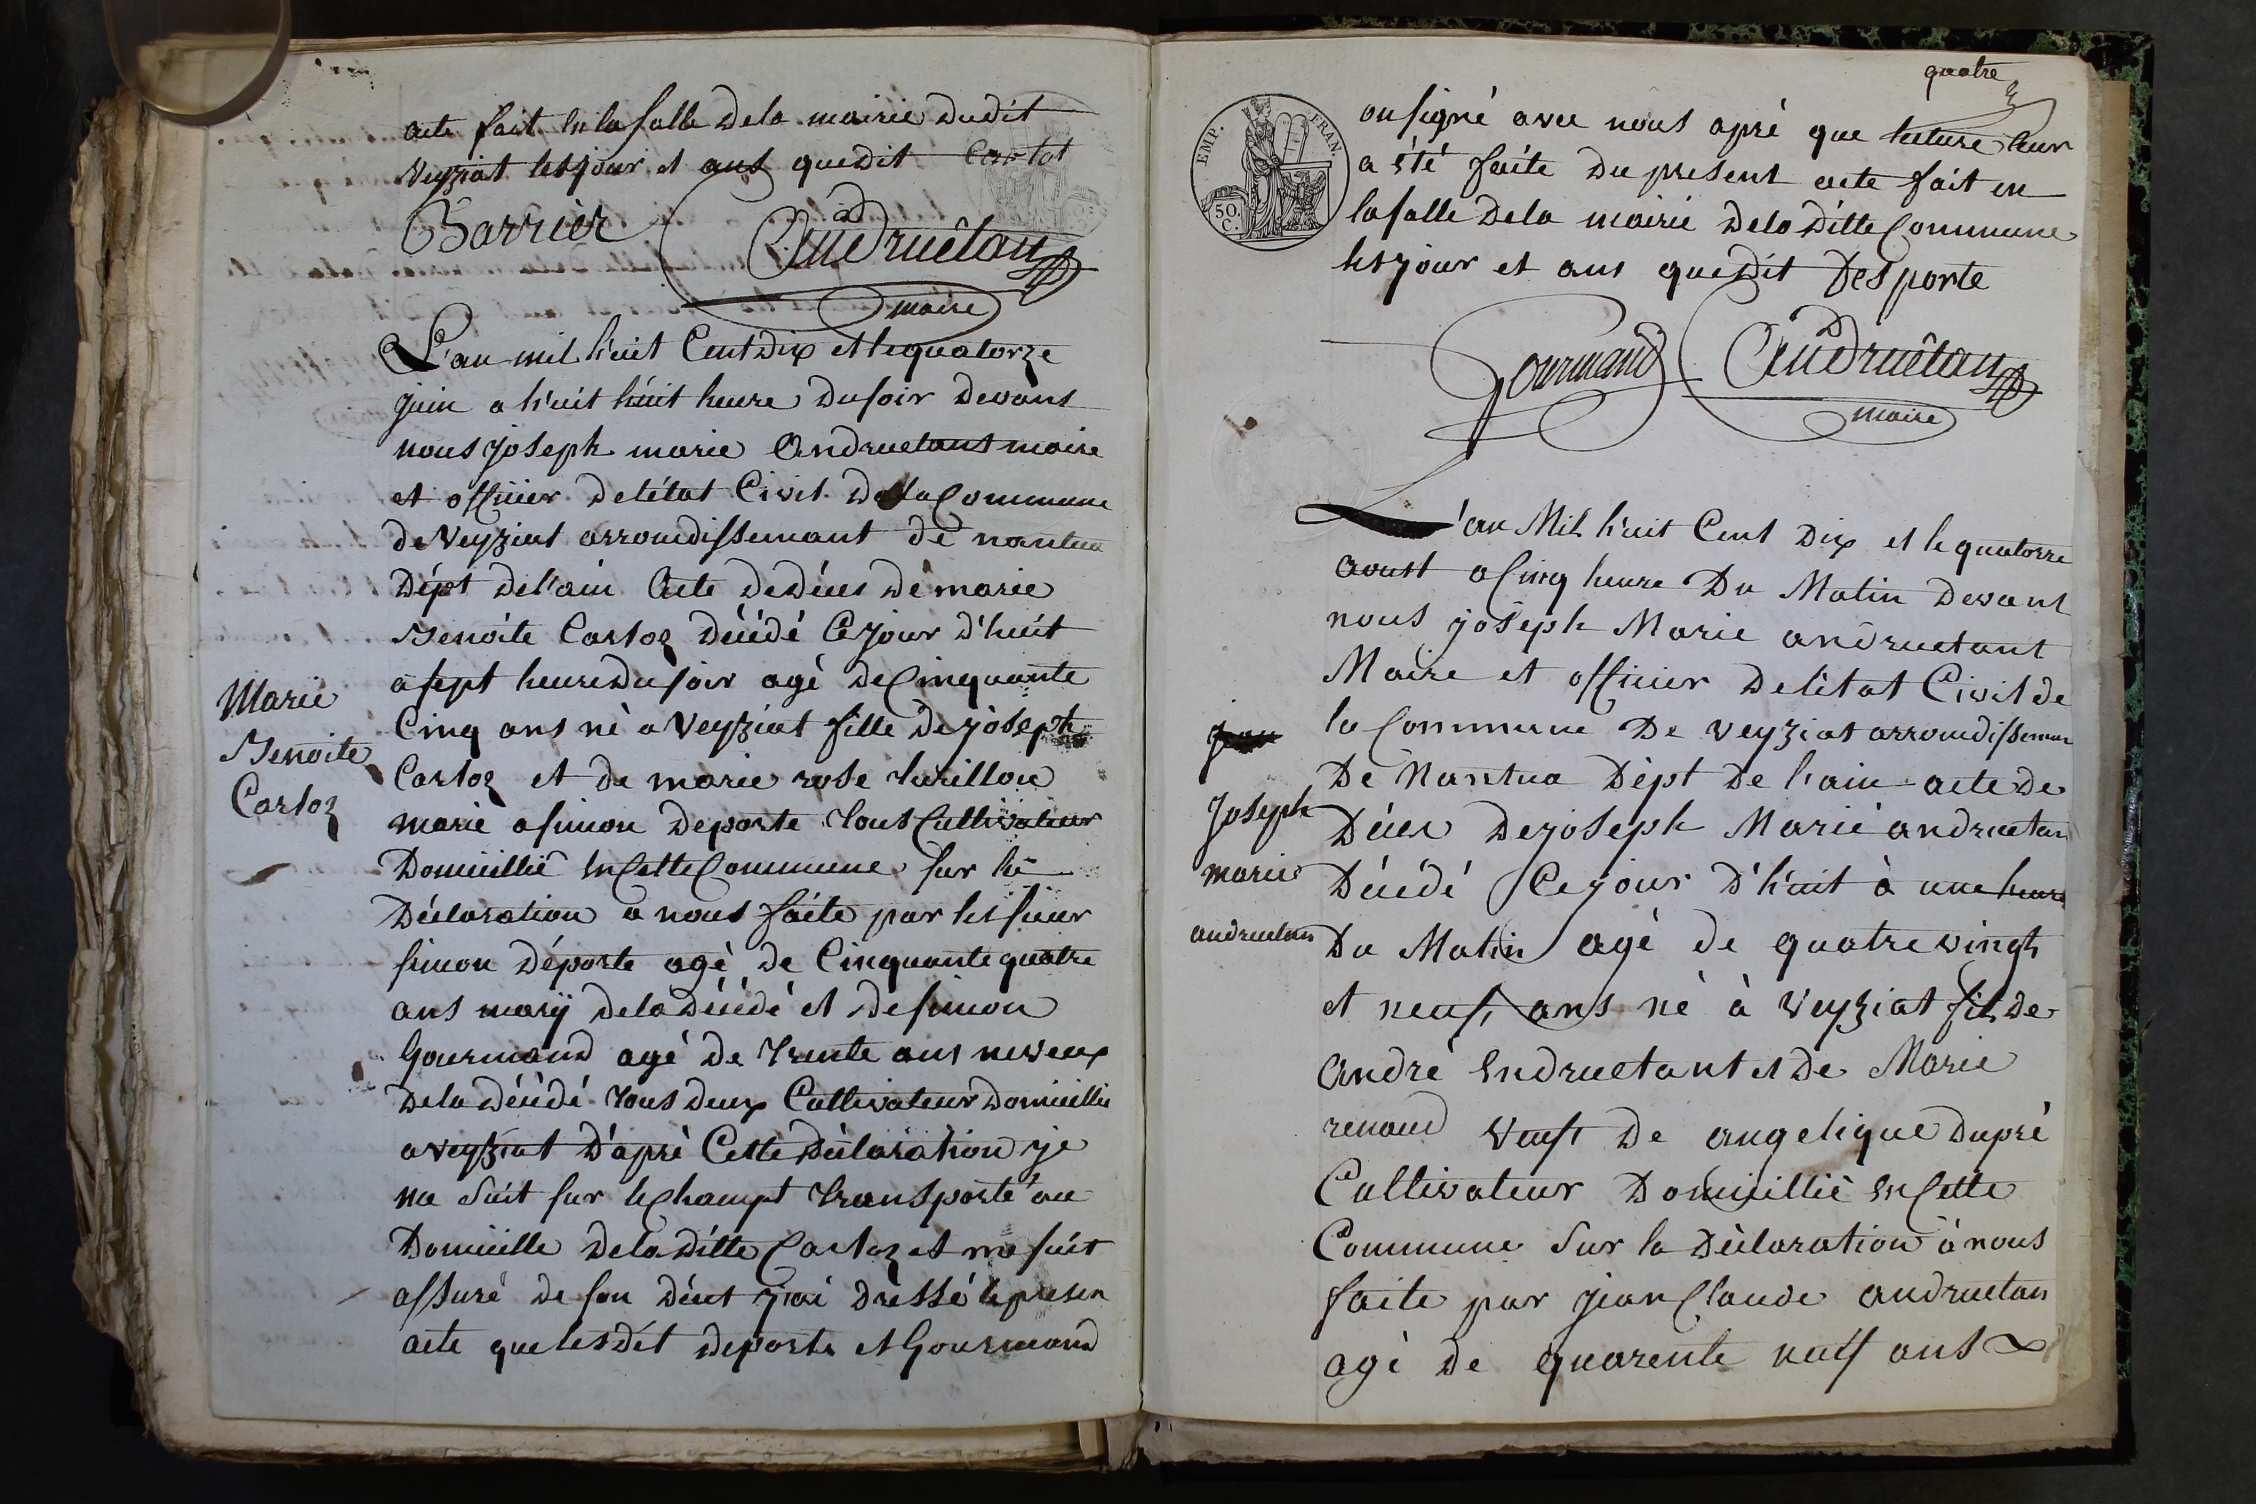 acte fait en la salle de la mairie dudit
veyziat les jour et ans que dit Carlot
Barrier Andruétan
maire
L'an mil h'uit Cent dix et le quatorze
juin a h'uit h'uit heure du soir devant
nous joseph marie Andruetant maire
et officier de l'état Civil de la Commune
de Veyziat arrondissemant de nantua
Dépt de l'ain Acte de déces de marie
Benoite Carloz décédé Ce jour d'huit
a sept heure du soir agé de Cinquante
Cinq ans né a Veyziat fille de joseph
Carloz et de marie rose
marié a simon deporte tous Cultivateur
Domicillié en Cette Commune sur la
Déclaration a nous faite par les sieur
simon déporte agé de Cinquante quatre
ans mary de la décédé et de simon
Gourmand agé de trente ans neveux
de la décédé tous deux Cultivateur Domicillie
a veyziat d'apré Cette Déclaration je
me suit sur le Champt transporté au
Domicille de la ditte Carloz et me suit
assuré de son décet j'ai dréssé le presen
acte que les dit deporte et Gourmand
Marie
Benoite
Carloz
quatre
on signé avec nous apré que lecture leur
a été faite du present acte fait en
la salle de la mairie de la ditte Commune
les jour et ans que dit Desporte
Gourmand Andruétan
maire
EMP. FRAN.
50.
C.
L'an Mil h'uit Cent Dix et le quatorze
aoust a Cinq heure Du Matin Devant
nous joseph Marie andruetant
Maire et officier De l'état Civil de
la Commune De veyziat arrondissemen
De Nantua Dépt De l'ain acte de
Déces De joseph Marie andruetan
Décédé Ce jour d'h'uit à une heure
Du Matin agé de quatre vingt
et neuf ans né à Veyziat fils de
André Endruetant et De Marie
renaud veuf De angelique dupré
Cultivateur Domicillié en Cette
Commune Sur la Déclaration à nous
faite par jean Claude andruetan
agé de quarente neuf ans
jean
Joseph
marie
andruetan